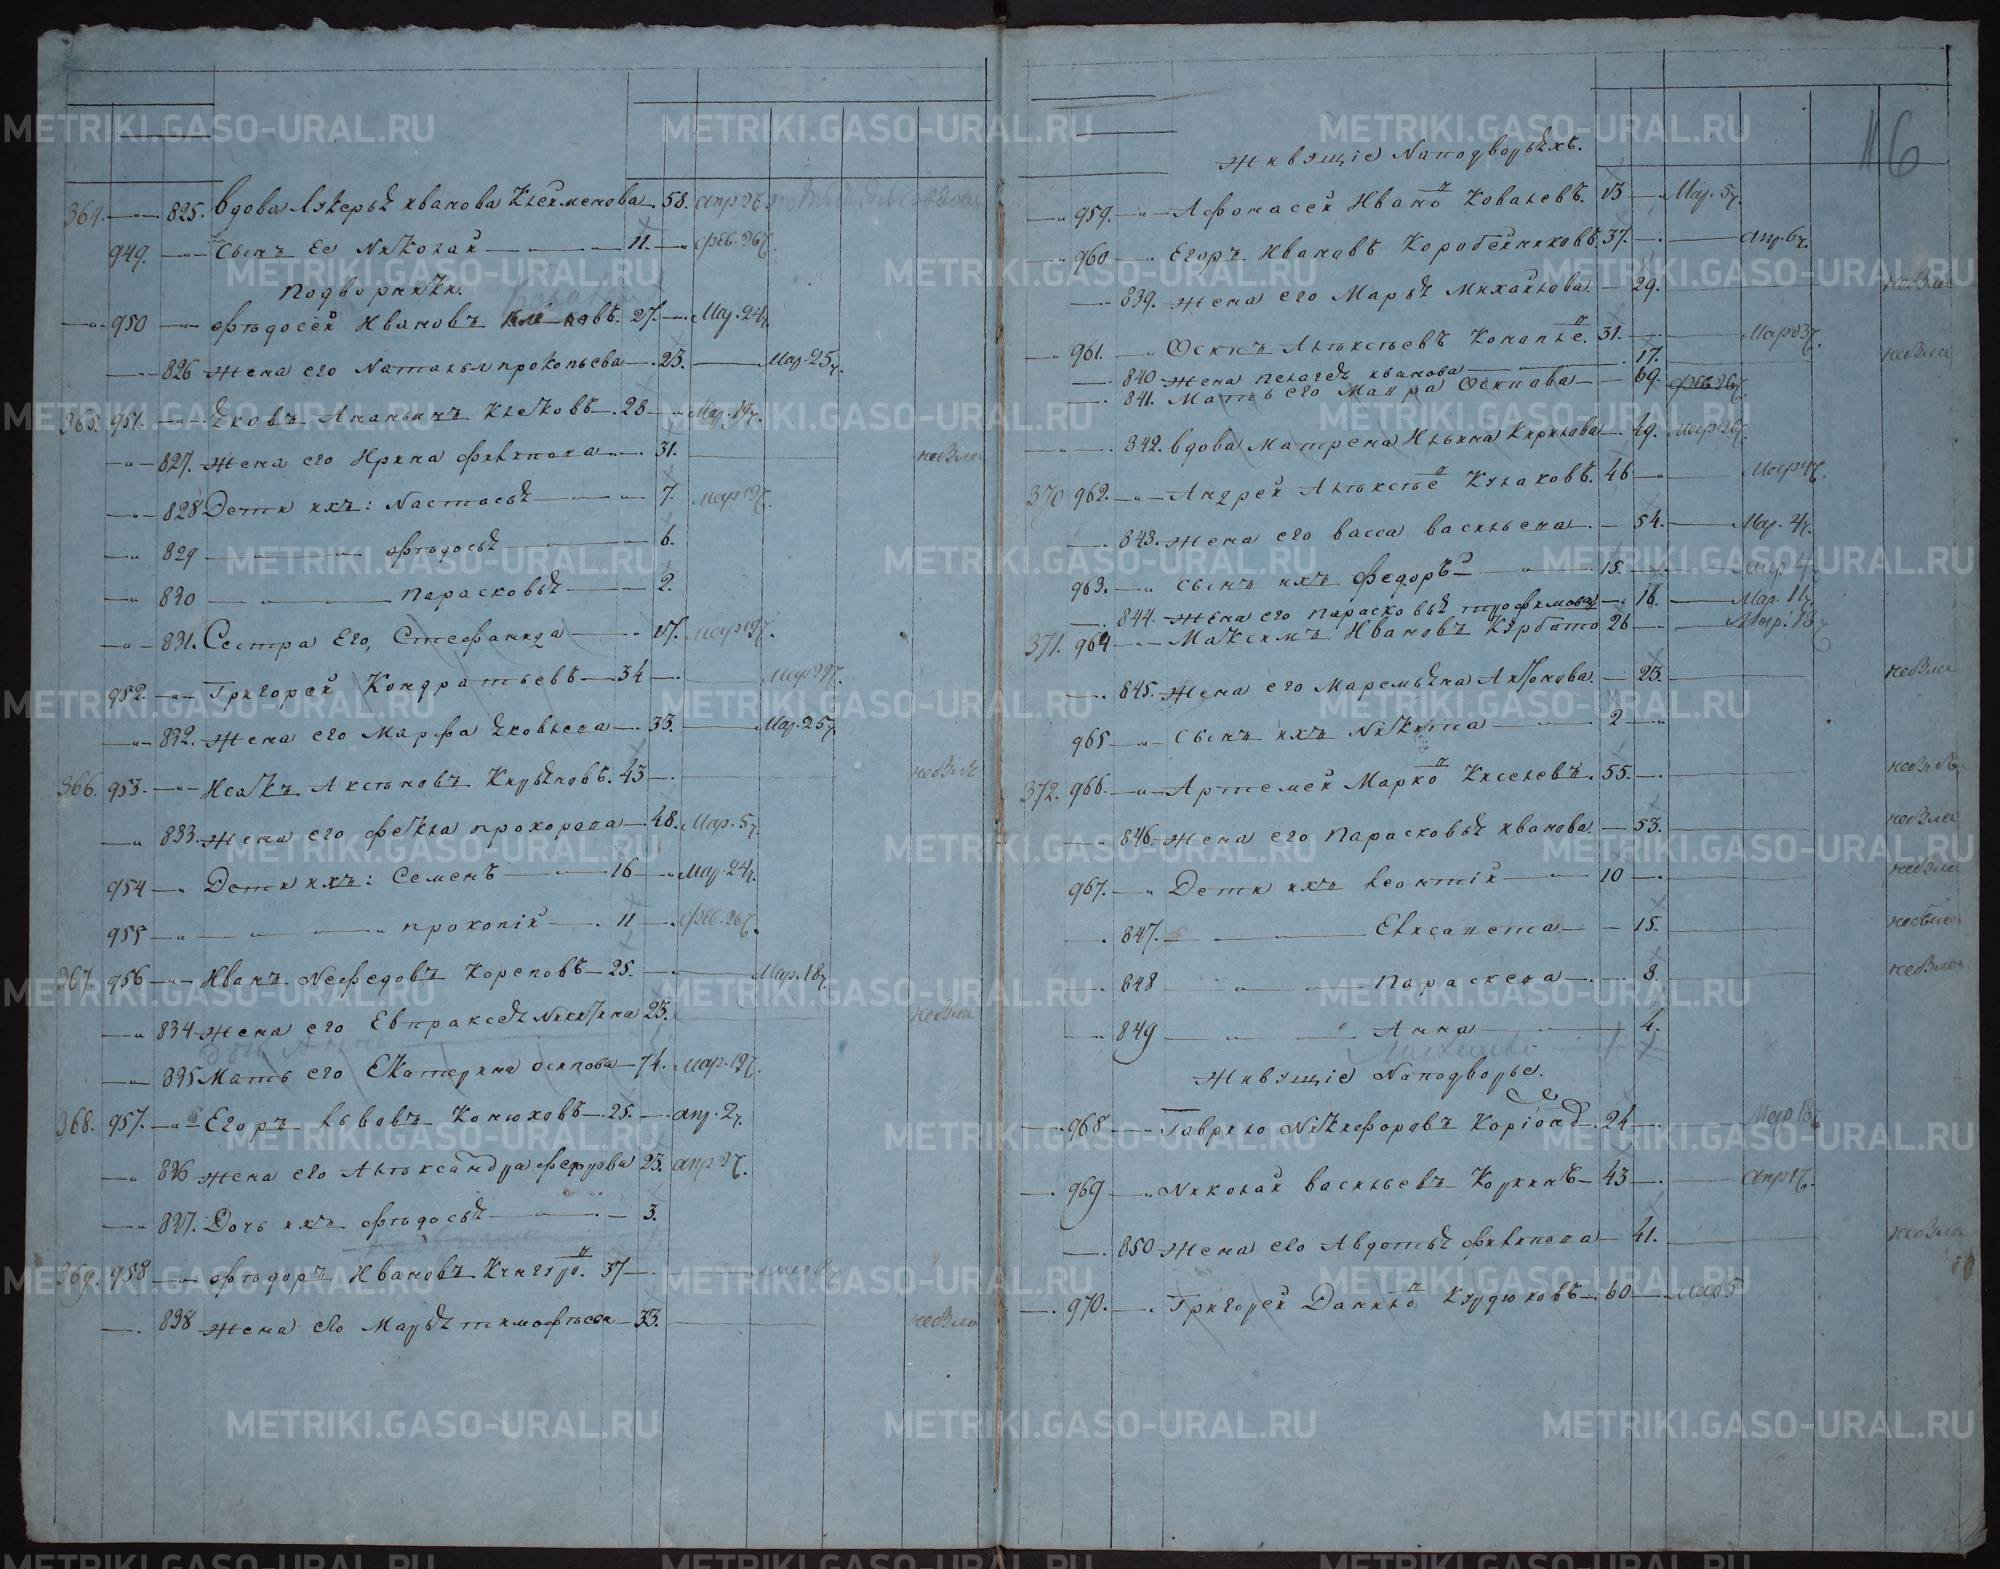 364. 825. Вдова Лукерья иванова Клейменова 58. апр 2ч.
949. Сынъ Ее Николай 11. фев. 26ч.
подворники.
950 Фѣдосей Ивановъ 27. Мар. 24ч.
826 жена его Наталья прокопьева 23. Мар. 25ч.
365. 951. Яковъ Ананьинъ Клековъ 28 Мар. 19ч.
827. жена его Ирина филипова 31. небыла
828 Дети ихъ: Настасья 7. мар 19ч.
829 фѣдосья 6.
830 парасковья 2.
831. Сестра Его, Стефанида 17. мар 19ч.
952. Григорей Кондратьевъ 34 Мар 22ч.
832. жена его Марфа яковлева 33. Мар. 25ч.
366. 953. Исакъ Аксѣновъ 43 небылъ
833. жена его фекла прохорова 48. Мар. 5ч.
954 Дети ихъ: Семенъ 16 Мар. 24ч.
955 прокопій 11 фев. 26ч.
367. 956 Иванъ Нефедовъ Кореповъ 25. Мар. 18ч.
834 жена его Евпраксья Никитина 23. небыла
835 Мать его Екатерина осипова 74. мар. 19ч.
368. 957. Егоръ Львовъ Конюховъ 25. апр. 2ч.
836 жена его Алѣксандра федорова 23. апр 2ч.
837. Дочь ихъ фѣдосья 3.
369. 958 фѣдоръ Ивановъ 37
838 жена его Марья тимофѣева 33. небыла
116
Живущіе Наподворьяхъ.
959. Афонасей Ивано Ковалевъ. 13 Мар. 5ч.
960 Егоръ Ивановъ Коробейниковъ. 37. апр. 6ч.
839. жена его Марья Михайлова 29. небыла
961. Осипъ Алѣксѣевъ 31.
840 жена пелагея иванова 17. небыла
841. Мать его Мавра Осипова 69. фев 26ч.
842. вдова Матрена Ильина Кирилова 49.
370 962. Андрей Алѣксѣе Кулаковъ. 46
843. жена его васса васильева 54. Мар. 4ч.
963. сынъ ихъ федоръ 15.
844. жена его парасковья трофимова 16. Мар. 11ч.
371. 964 Максимъ Ивановъ Курбато 26 Мар. 18ч.
845. жена его Маремьяна Антонова. 23. небыла
965 сынъ ихъ Никита 2
372. 966. Артемей Марко Киселевъ. 55. небылъ
846. жена его парасковья иванова 53. небыла
967. Дети ихъ леонтій 10 небыл
847. Елисавета 15. небыла
848 Параскева 8. небыла
849 Анна 4.
Живущіе Наподворье.
968 Гаврило Никифоровъ 24 Мар 18ч
969 Николай васильевъ Коркинъ 43 апр
850 жена его Авдотья филипова 41. небыла
970. Григорей Данило Кудюковъ 60 мар 5